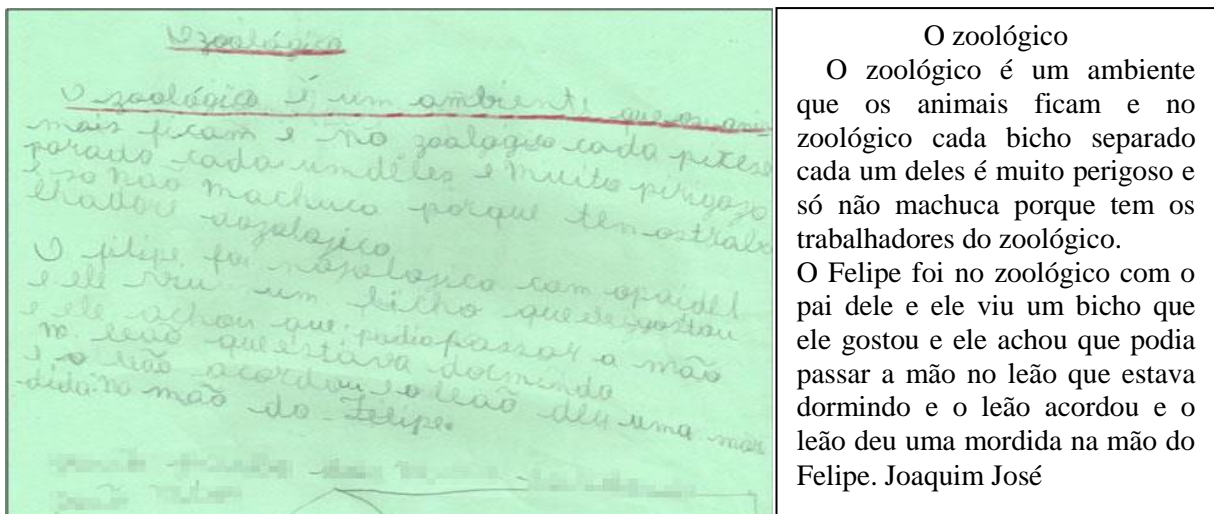 O zoológico
O zoológico é um ambienti que os ani
mais ficam e no zoologico cada
parado cada um deles e muito pirigozo
e so não machuca porque tem ostraba
lhadore
O filipe foi com opaidel
e ele viu um bicho
e ele achou que podiapassar a mão
leão dormindo
e o leão acordou e o leão deu uma mor
dida na mão do Felipe.
O zoológico
O zoológico é um ambiente
que os animais ficam e no
zoológico cada bicho separado
cada um deles é muito perigoso e
só não machuca porque tem os
trabalhadores do zoológico.
O Felipe foi no zoológico com o
pai dele e ele viu um bicho que
ele gostou e ele achou que podia
passar a mão no leão que estava
dormindo e o leão acordou e o
leão deu uma mordida na mão do
Felipe. Joaquim José